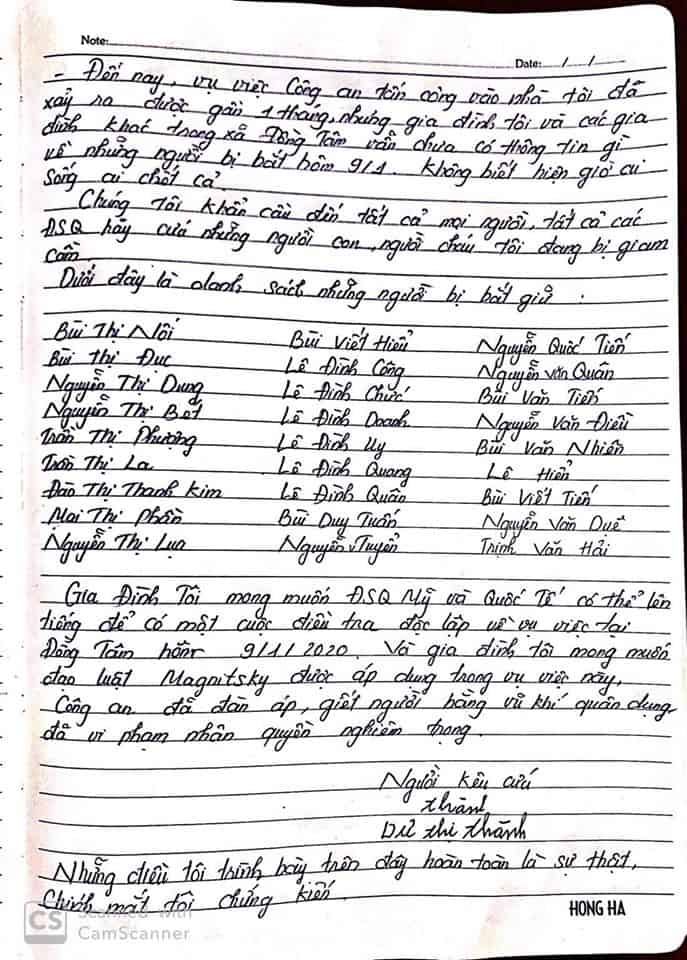 Note:
Date: / /
- Đến nay, vụ việc Công an tấn công vào nhà tôi đã
xảy ra được gần 1 tháng, nhưng gia đình tôi và các gia
đình khác trong xã Đồng Tâm vẫn chưa có thông tin gì
về những người bị bắt hôm 9/1. Không biết hiện giờ ai
sống ai chết cả.
Chúng tôi khẩn cầu đến tất cả mọi người, tất cả các
ĐSQ hãy cứu những người con, người cháu tôi đang bị giam
cầm
Dưới đây là danh sách những người bị bắt giữ :
Bùi Thị Nối Bùi Viết Hiểu Nguyễn Quốc Tiến
Bùi Thị Đục Lê Đình Công Nguyễn Văn Quân
Nguyễn Thị Dung Lê Đình Chức Bùi Văn Tiến
Nguyễn Thị Bét Lê Đình Doanh Nguyễn Văn Điều
Trần Thị Phượng Lê Đình Uy Bùi Văn Nhiên
Trần Thị La Lê Đình Quang Lê Hiển
Đào Thị Thanh Kim Lê Đình Quân Bùi Viết Tiến
Mai Thị Phần Bùi Duy Tuấn Nguyễn Văn Duệ
Nguyễn Thị Lụa Nguyễn V Tuyển Trịnh Văn Hải
Gia Đình Tôi mong muốn ĐSQ Mỹ và Quốc Tế có thể lên
tiếng để có một cuộc điều tra độc lập về vụ việc tại
Đồng Tâm hôm 9/1/2020. Và gia đình tôi mong muốn
đạo luật Magnitsky được áp dụng trong vụ việc này,
Công an đã đàn áp, giết người bằng vũ khí quân dụng
đã vi phạm nhân quyền nghiêm trọng.
Người kêu cứu
Thành
Dư Thị Thành
Những điều tôi trình bày trên đây hoàn toàn là sự thật,
Chính mắt tôi chứng kiến.
HONG HA
CS Scanned with
CamScanner